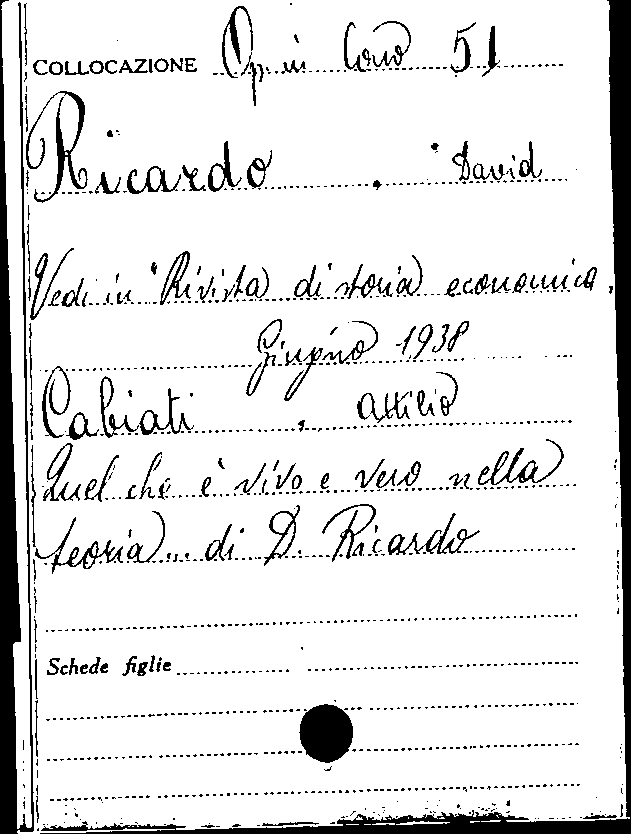 COLLOCAZIONE Op. in Corso 51
Ricardo . David
Vedi in "Rivista di storia economica.
Giugno 1938
Cabiati , Attilio
Quel che è vivo e vero nella
teoria... di D. Ricardo
Schede figlie